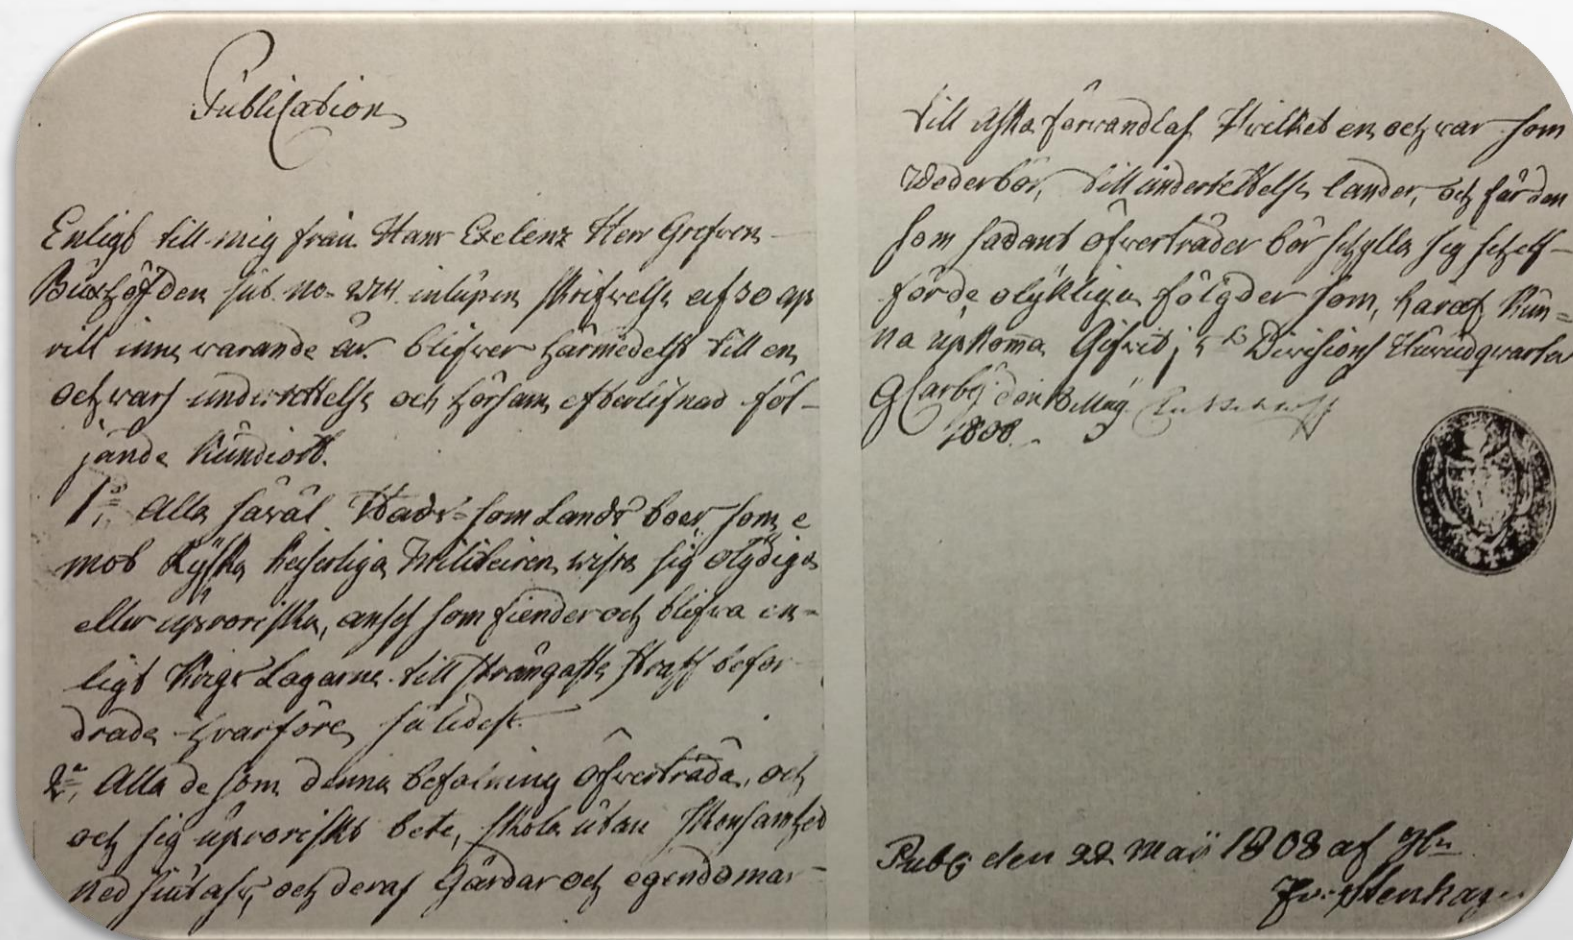 Publication
Enligt till mig från Hans Exelenz Herr Grefven
Buxhöfden sub. no. inlupen skrifwelse af 30 ap
rill inne warande år blifwer härmedelst till en
och wars underrettelse och hörsam efterlefnad föl-
jande kundiort.
1o, Alla såväl Stads- som Lands boer, som e
mot Ryska keiserliga Militeiren wisa sig olydiga
eller uproriska, anses som fiender och blifwa en-
ligt Krigs Lagarne till strängaste straff befor
drade hvarföre således.
2o, Alla de som denna befalning öfwerträda, och
och sig uproriskt bete, skola utan skonsamhed
ned skiutas, och deras Gårdar och egendomar
till aska förwandlas Hwilket en och war som
wederbör, till underrettelse lander, och får den
som sådant öfwerträder bör skylla sig sjelf
för de olykliga fölgder som, häraf kun-
na upkomma Gifwit i 5te Divisions Huwudqvarter
GCarby den Maÿ
1808.
Publ den 22 Maÿ 1808 af